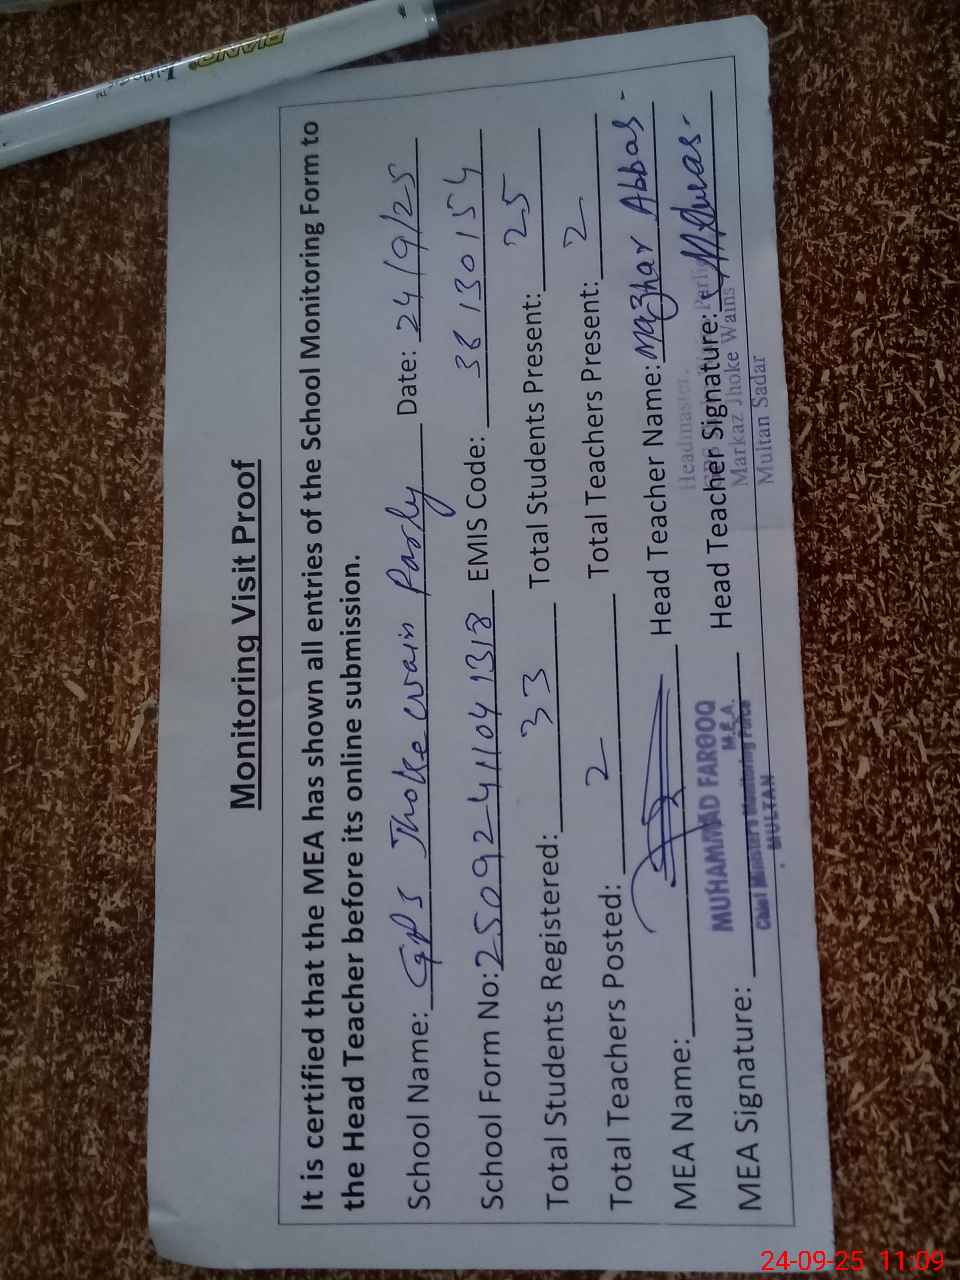 Monitoring Visit Proof
It is certified that the MEA has shown all entries of the School Monitoring Form to
the Head Teacher before its online submission.
School Name: GPS Jhoke wain Parly Date: 24/9/25
School Form No: 25092411041318 EMIS Code: 36130154
Total Students Registered: 33 Total Students Present: 25
Total Teachers Posted: 2 Total Teachers Present: 2
MEA Name: Head Teacher Name: Mazhar Abbas
MEA Signature: Head Teacher Signature:
MUHAMMAD FAROOQ
M.E.A.
Chief Minister's Monitoring Force
MULTAN
Headmaster
Markaz Jhoke Wains
Multan Sadar
24-09-25 11:09